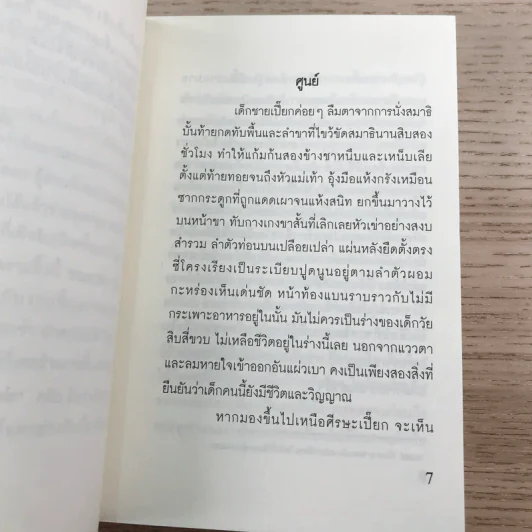 ศูนย์
เด็กชายเปี๊ยกค่อยๆ ลืมตาจากการนั่งสมาธิ
บั้นท้ายกดทับพื้นและลำขาที่ไขว้ขัดสมาธินานสิบสอง
ชั่วโมง ทำให้แก้มก้นสองข้างชาหนึบและเหน็บเลีย
ตั้งแต่ท้ายทอยจนถึงหัวแม่เท้า อุ้งมือแห้งกรังเหมือน
ซากกระดูกที่ถูกแดดเผาจนแห้งสนิท ยกขึ้นมาวางไว้
บนหน้าขา ทับกางเกงขาสั้นที่เลิกเลยหัวเข่าอย่างสงบ
สำรวม ลำตัวท่อนบนเปลือยเปล่า แผ่นหลังยืดตั้งตรง
ซี่โครงเรียงเป็นระเบียบปูดนูนอยู่ตามลำตัวผอม
กะหร่องเห็นเด่นชัด หน้าท้องแบนราบราวกับไม่มี
กระเพาะอาหารอยู่ในนั้น มันไม่ควรเป็นร่างของเด็กวัย
สิบสี่ขวบ ไม่เหลือชีวิตอยู่ในร่างนี้เลย นอกจากแววตา
และลมหายใจเข้าออกอันแผ่วเบา คงเป็นเพียงสองสิ่งที่
ยืนยันว่าเด็กคนนี้ยังมีชีวิตและวิญญาณ
หากมองขึ้นไปเหนือศีรษะเปี๊ยก จะเห็น
7